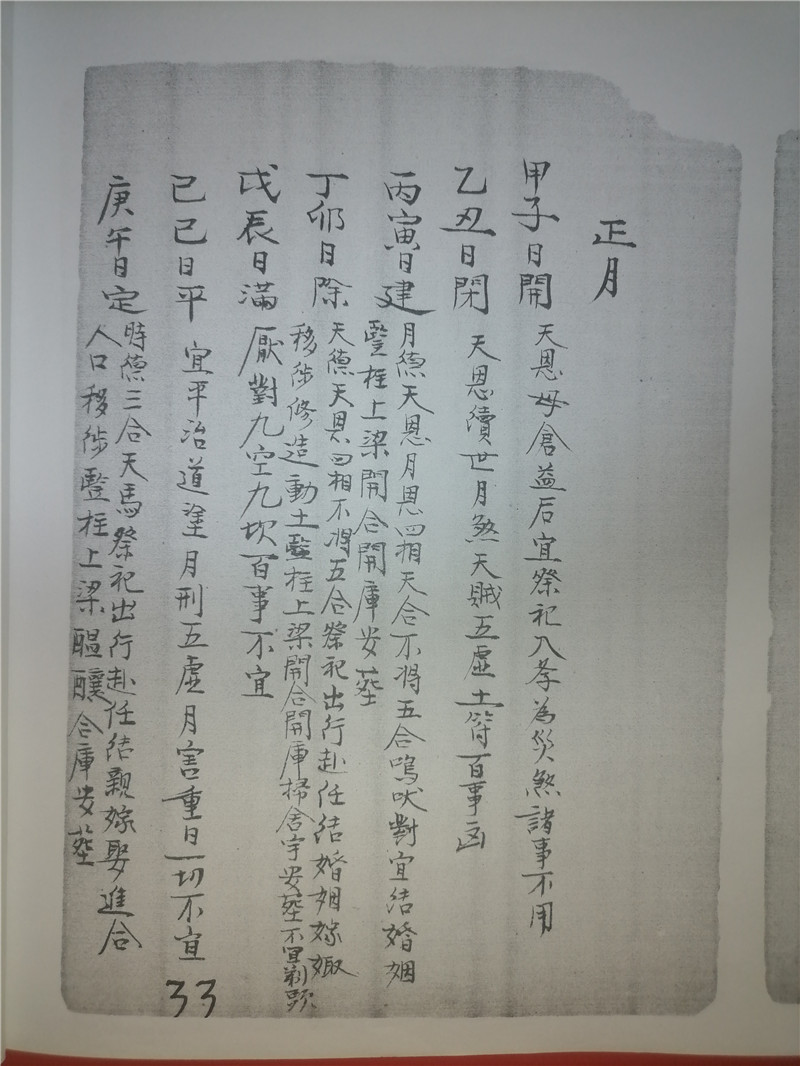 正月
甲子日開 天恩母倉益后宜祭祀入孝為災煞諸事不用
乙丑日閉 天恩續世月煞天賊五虛土符百事凶
丙寅日建 月德天恩月恩四相天合不將五合鳴吠對宜結婚姻
豎柱上梁開合開庫安葬
丁卯日除 天德天恩四相不將五合祭祀出行赴任结婚姻嫁娵
移徙修造動土豎柱上梁開合開庫掃舍宇安葬不宜剃頭
戊辰日滿 厭對九空九坎百事不宜
己巳日平 宜平治道塗月刑五虛月害重日一切不宜
庚午日定 時德三合天馬祭祀出行赴任结親嫁娶進合
人口移徙豎柱上梁醞釀合庫安葬
33